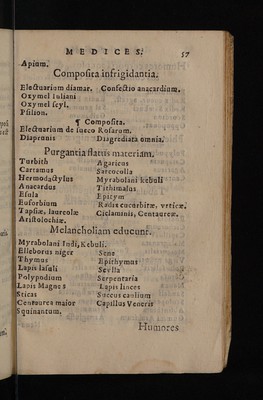 MEDICES. 57
Apium.
Composita infrigidantia.
Electuarium diamar. Confectio anacardium.
Oxymel Iuliani
Oxymel scyl.
Psilion.
¶ Composita.
Electuarium de succo Rosarum.
Diaprunis Diagredista omnia.
Purgantia flatus materiam.
Turbith Agaricus
Cartamus Sarcocolla
Hermodactylus Myrabolani kebuli
Anacardus Tithimalus
Esula Epitym
Euforbium Radix cucurbitæ, vrticæ,
Tapsiæ, laureolæ Ciclaminis, Centaureæ.
Aristolochiæ.
Melancholiam educunt.
Myrabolani Indi, Kebuli.
Elleborus niger Sene
Thymus Epithymus
Lapis lasuli Scylla
Polypodium Serpentaria
Lapis Magnes Lapis linces
Sticas Succus caulium
Centaurea maior Capillus Veneris
Squinantum.
Humores